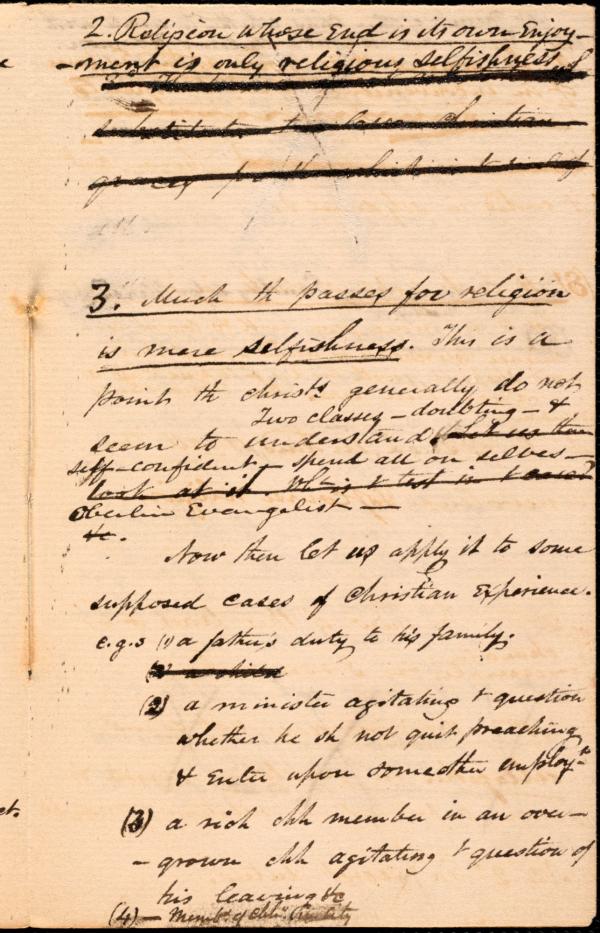 2. Religion whose End is its own Enjoy-
-ment is only religious selfishness.
3. Much th passes for religion
is mere selfishness. This is a
point th christs generally do not
Two classes – doubting – &
seem to understand. Let us then
self-confident – spend all on selves –
look at it. Wh is t test in t
Oberlin Evangelist –
&c.
Now then let us apply it to some
supposed cases of Christian Experience.
e.g.s (1) a father's duty to his family.
(2) a child
(2) a minister agitating t question
whether he sh not quit preaching
& Enter upon some other employ-
(3) a rich chh member in an over-
-grown chh agitating t question of
his leaving &c
(4) – Memb. of chh in City
ct.